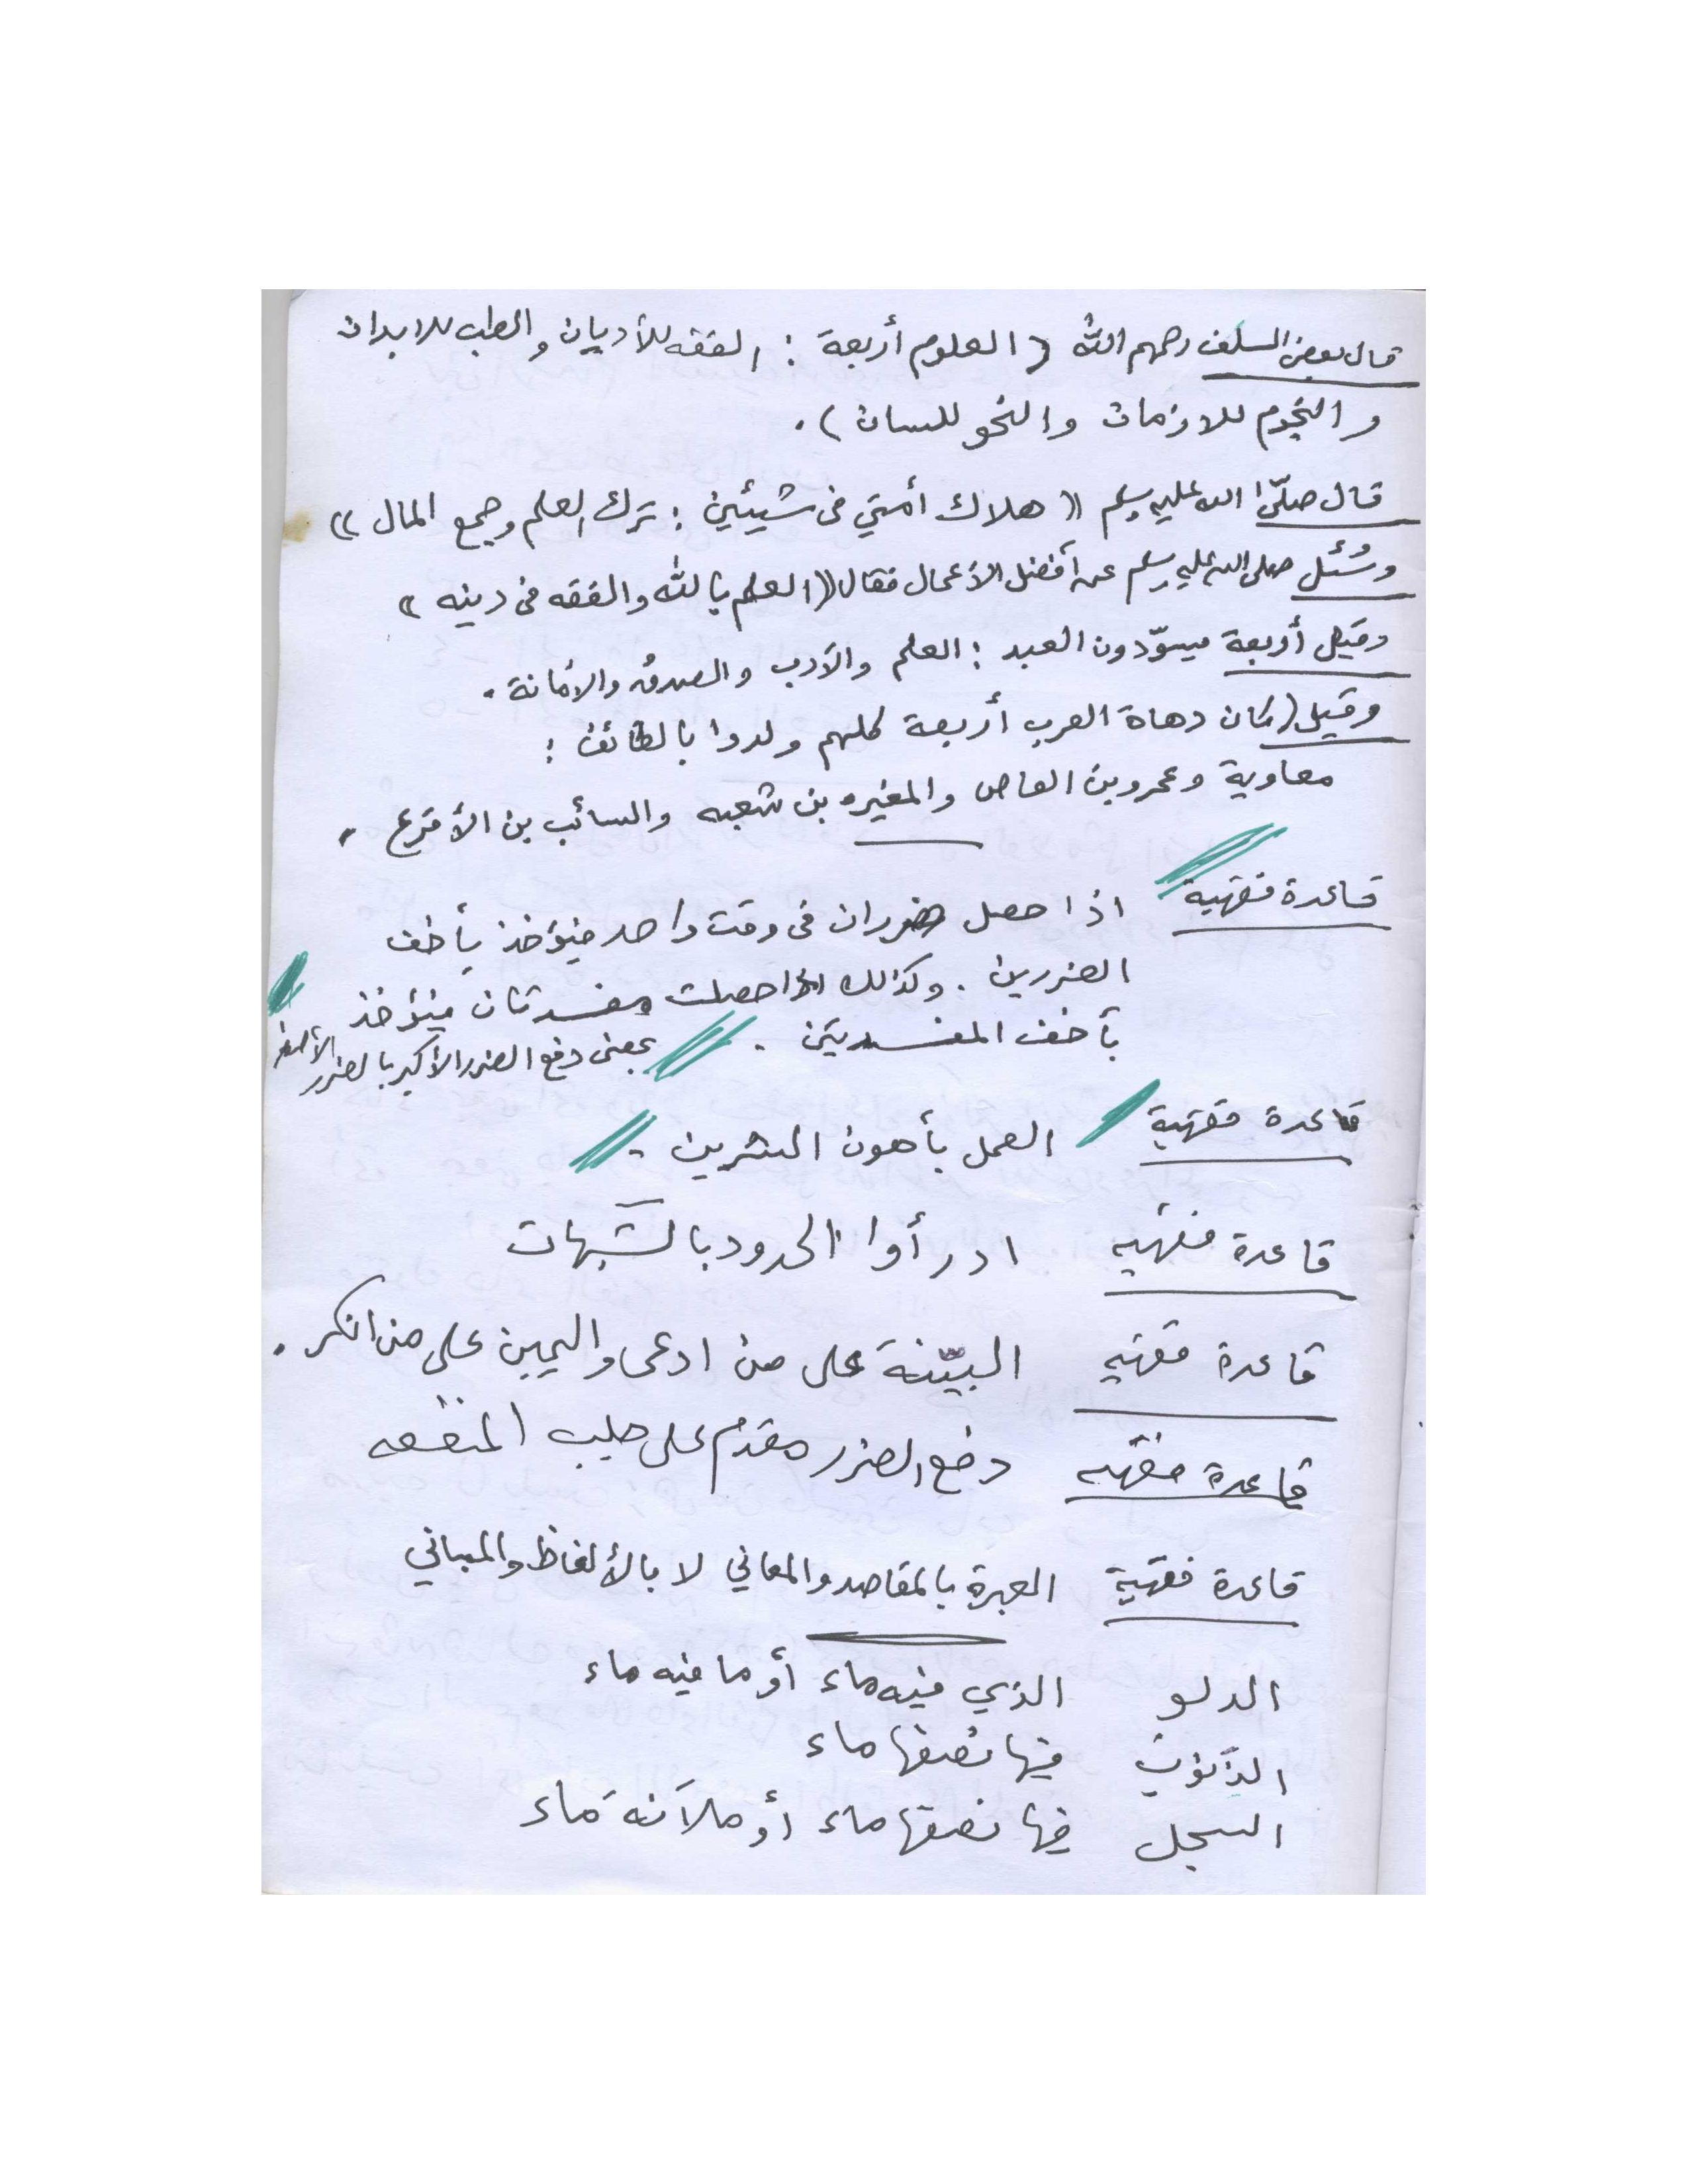 قال بعض السلف رحمهم الله ( العلوم أربعة : الفقه للأديان والطب للابدان
والنجوم للازمان والنحو للسان ) .
قال صلّى الله عليه وسلم (( هلاك أمتي فى شيئين : ترك العلم وجمع المال ))
وسُئل صلى الله عليه وسلم عن أفضل الأعمال فقال (( العلم بالله والفقه فى دينه ))
وقيل أربعة يسوّدون العبد : العلم والأدب والصدق والأمانة .
وقيل ( كان دهاة العرب أربعة كلهم ولدوا بالطائف :
معاوية وعمرو بن العاص والمغيره بن شعبه والسائب بن الأقرع .
قاعدة فقهية اذا حصل ضرران فى وقت واحد فيؤخذ بأخف
الضررين . وكذلك اذا حصلت مفسدتان فيؤخذ
بأخف المفسدتين . بمعنى دفع الضرر الأكبر بالضرر الأصغر
قاعدة فقهية العمل بأهون الشرين .
قاعدة فقهيه ادرأوا الحدود بالشبهات
قاعدة فقهيه البيّنة على من ادعى واليمين على من انكر .
قاعدة فقهيه دفع الضرر مقدم على جلب المنفعه
قاعدة فقهية العبرة بالمقاصد والمعاني لا بالألفاظ والمباني
الدلو الذي فيه ماء أو ما فيه ماء
الذَنوب فيها نصفها ماء
السجل فيها نصفها ماء أو ملآنة ماء